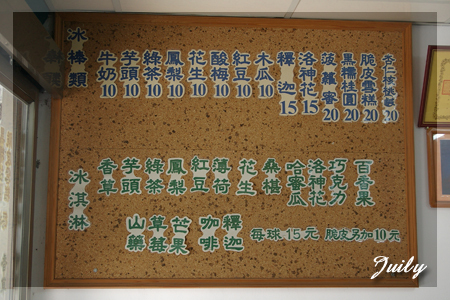 冰棒類
牛奶10
芋頭10
綠茶10
鳳梨10
花生10
酸梅10
紅豆10
木瓜10
釋迦15
洛神花15
菠蘿蜜20
黑糯桂圓20
脆皮雪糕20
20
冰淇淋
香草
芋頭
綠茶
鳳梨
紅豆
薄荷
花生
桑椹
哈蜜瓜
洛神花
巧克力
百香果
山藥
草莓
芒果
咖啡
釋迦
每球15元 脆皮另加10元
Juily